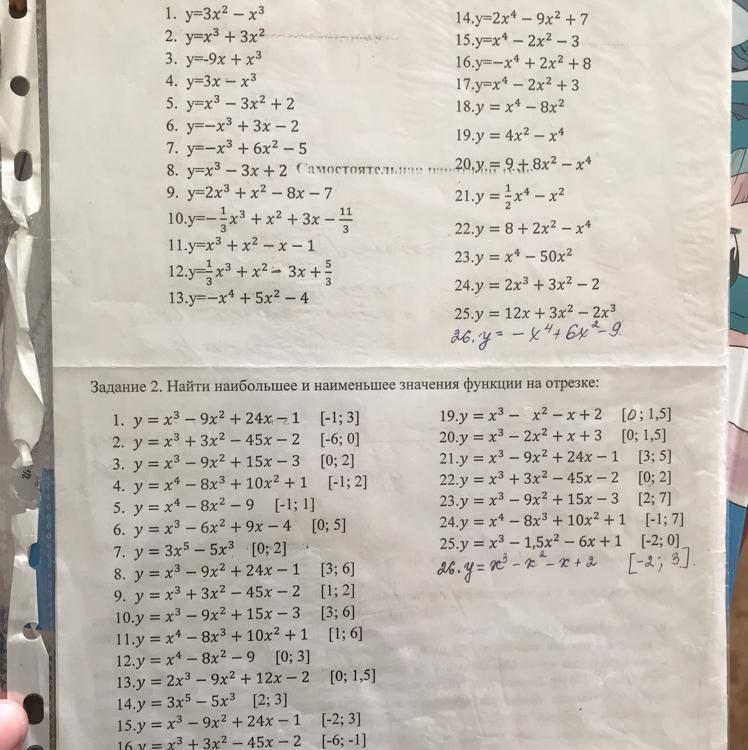 1. y=3x² − x³
2. y=x³ + 3x²
3. y=-9x + x³
4. y=3x − x³
5. y=x³ − 3x² + 2
6. y=−x³ + 3x − 2
7. y=−x³ + 6x² − 5
8. y=x³ − 3x + 2 Самостоятельная
9. y=2x³ + x² − 8x − 7
10.y=−1/3x³ + x² + 3x − 11/3
11.y=x³ + x² − x − 1
12.y=1/3x³ + x² − 3x + 5/3
13.y=−x⁴ + 5x² − 4
14.y=2x⁴ − 9x² + 7
15.y=x⁴ − 2x² − 3
16.y=−x⁴ + 2x² + 8
17.y=x⁴ − 2x² + 3
18.y = x⁴ − 8x²
19.y = 4x² − x⁴
20.y = 9 + 8x² − x⁴
21.y = 1/2x⁴ − x²
22.y = 8 + 2x² − x⁴
23.y = x⁴ − 50x²
24.y = 2x³ + 3x² − 2
25.y = 12x + 3x² − 2x³
26. y = − x⁴ + 6x² − 9.
Задание 2. Найти наибольшее и наименьшее значения функции на отрезке:
1. y = x³ − 9x² + 24x − 1 [-1; 3]
2. y = x³ + 3x² − 45x − 2 [-6; 0]
3. y = x³ − 9x² + 15x − 3 [0; 2]
4. y = x⁴ − 8x³ + 10x² + 1 [-1; 2]
5. y = x⁴ − 8x² − 9 [-1; 1]
6. y = x³ − 6x² + 9x − 4 [0; 5]
7. y = 3x⁵ − 5x³ [0; 2]
8. y = x³ − 9x² + 24x − 1 [3; 6]
9. y = x³ + 3x² − 45x − 2 [1; 2]
10.y = x³ − 9x² + 15x − 3 [3; 6]
11.y = x⁴ − 8x³ + 10x² + 1 [1; 6]
12.y = x⁴ − 8x² − 9 [0; 3]
13.y = 2x³ − 9x² + 12x − 2 [0; 1,5]
14.y = 3x⁵ − 5x³ [2; 3]
15.y = x³ − 9x² + 24x − 1 [-2; 3]
16.y = x³ + 3x² − 45x − 2 [-6; -1]
19.y = x³ − x² − x + 2 [0; 1,5]
20.y = x³ − 2x² + x + 3 [0; 1,5]
21.y = x³ − 9x² + 24x − 1 [3; 5]
22.y = x³ + 3x² − 45x − 2 [0; 2]
23.y = x³ − 9x² + 15x − 3 [2; 7]
24.y = x⁴ − 8x³ + 10x² + 1 [-1; 7]
25.y = x³ − 1,5x² − 6x + 1 [-2; 0]
26. y = x³ − x² − x + 2 [-2; 3].